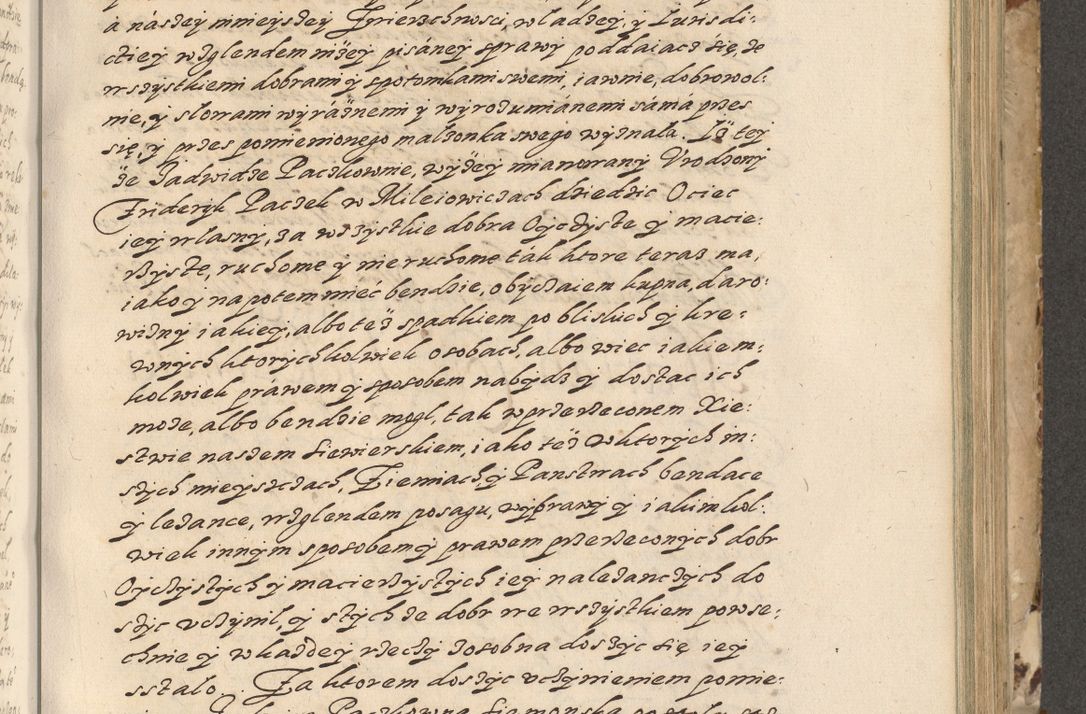 á nászey mnieyszey Zwierzchnosci, władzey, y Iurisdi:
ctiey względem niżey pisáney sprawy poddaiacz się, ze
wszystkiemi dobrami y spotomkami swemi, iawnie, dobrowol:
nie, y słowami wyráżnemi y wyrozumiánemi sámá przes
się, y przes pomienionego małżonka swego wyznała. Iż tey
że Jadwidze Paczkownie, wyżey mianowany Vrodzony
Friderÿk Paczek w Mileiowiczach dziedzic Ociec
iey własny, za wszystkie dobra Oyczyste y macie:
rzyste, ruchome y nieruchome ták ktore teraz ma,
iako y napotem mieć bendzie, obyczaiem kupna, daro:
wizny iakiey, albo też spadkiem po bliskich y kre:
wnych ktorychkolwiek osobach, albo wiec iakiem:
kolwiek práwem y sposobem nabydz y dostac ich
może, albo bendzie mógł, tak w przerzeconem Xie:
stwie naszem Siewierskiem, iako też w ktorych in:
szych mieyszczach, Ziemiach y Panstwach bendace
y leżance, względem posagu, wyprawy y iakimkol:
wiek innym sposobem y prawem przerzeconych dobr
Oyczystych y macierzystych iey należanczych do
szyc vczynił, y stych że dobr we wszystkiem powse:
chnie y w każdey rzeczy zosobna doszyc się iey
sstało. Za ktorem doszyc vczynieniem pomie:
Paczkowna Siamonska